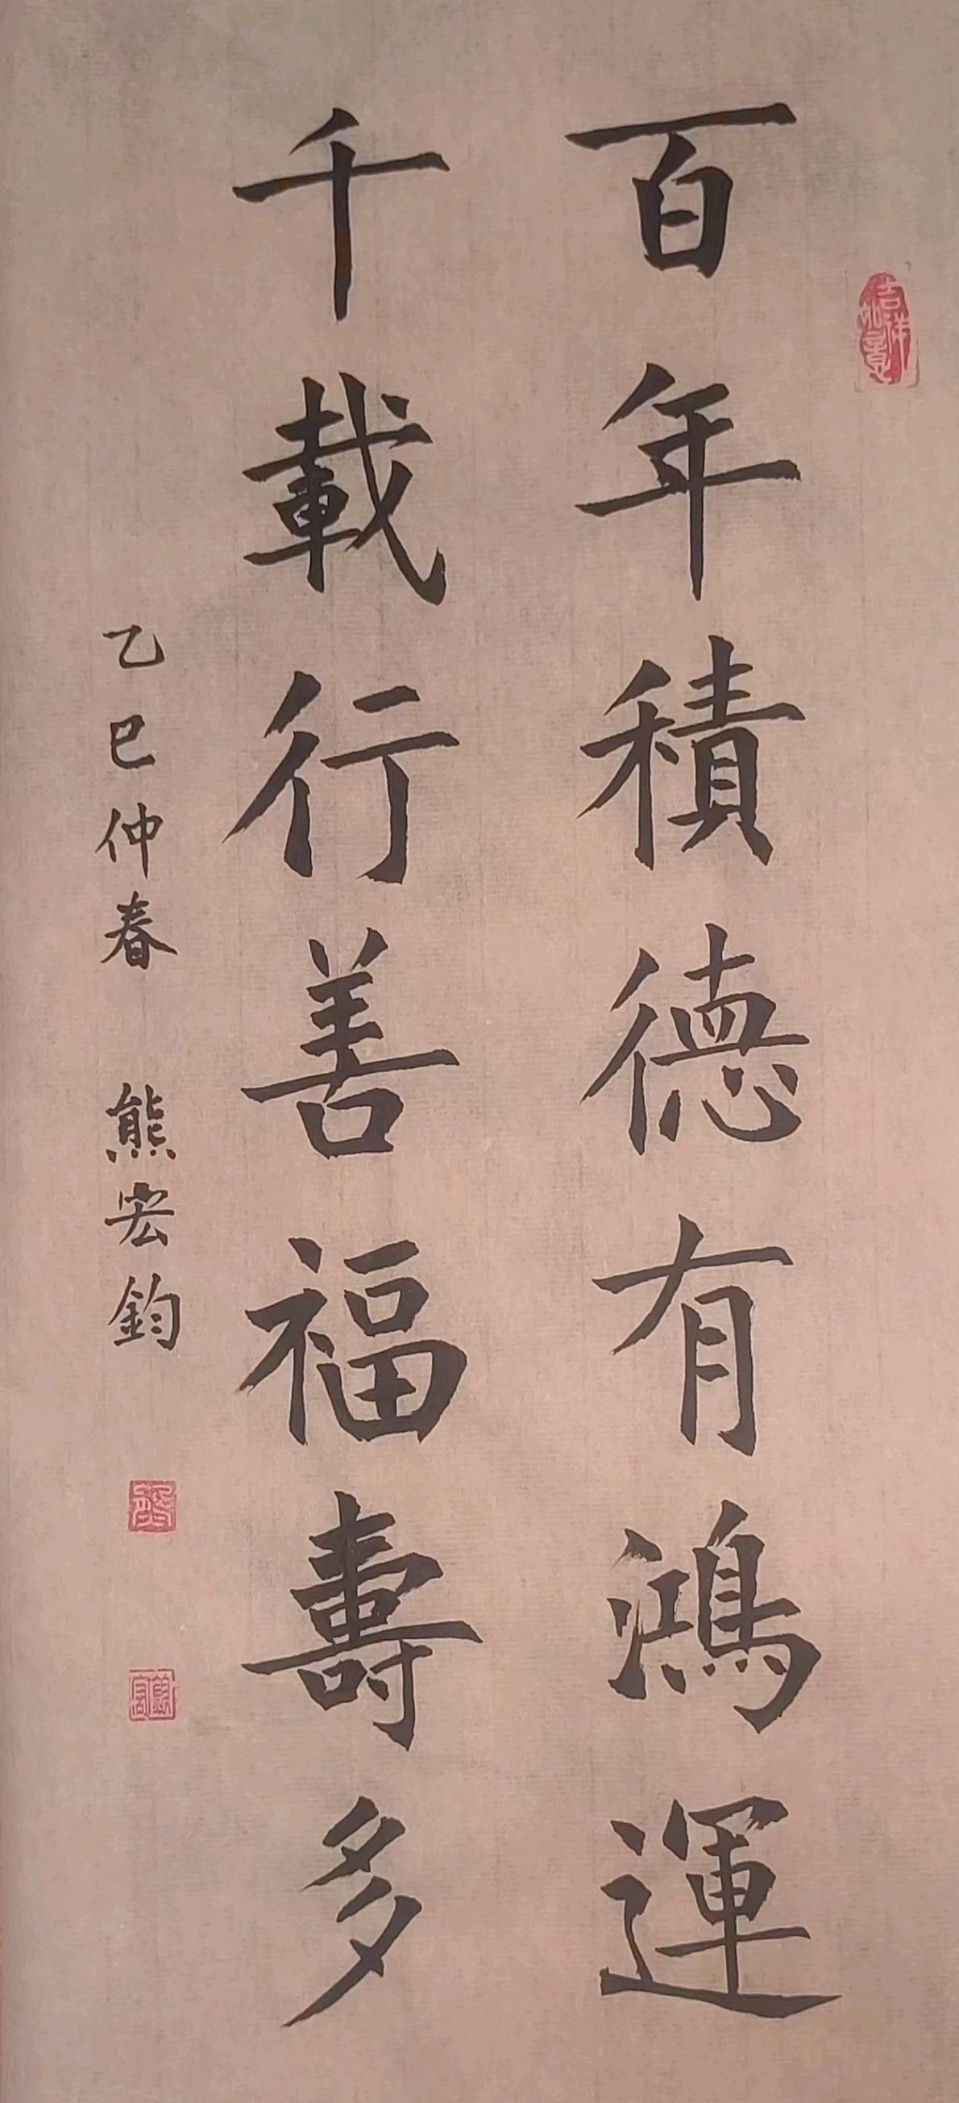 百年積德有鴻運
千載行善福壽多
乙巳仲春 熊宏鈞
吉祥如意